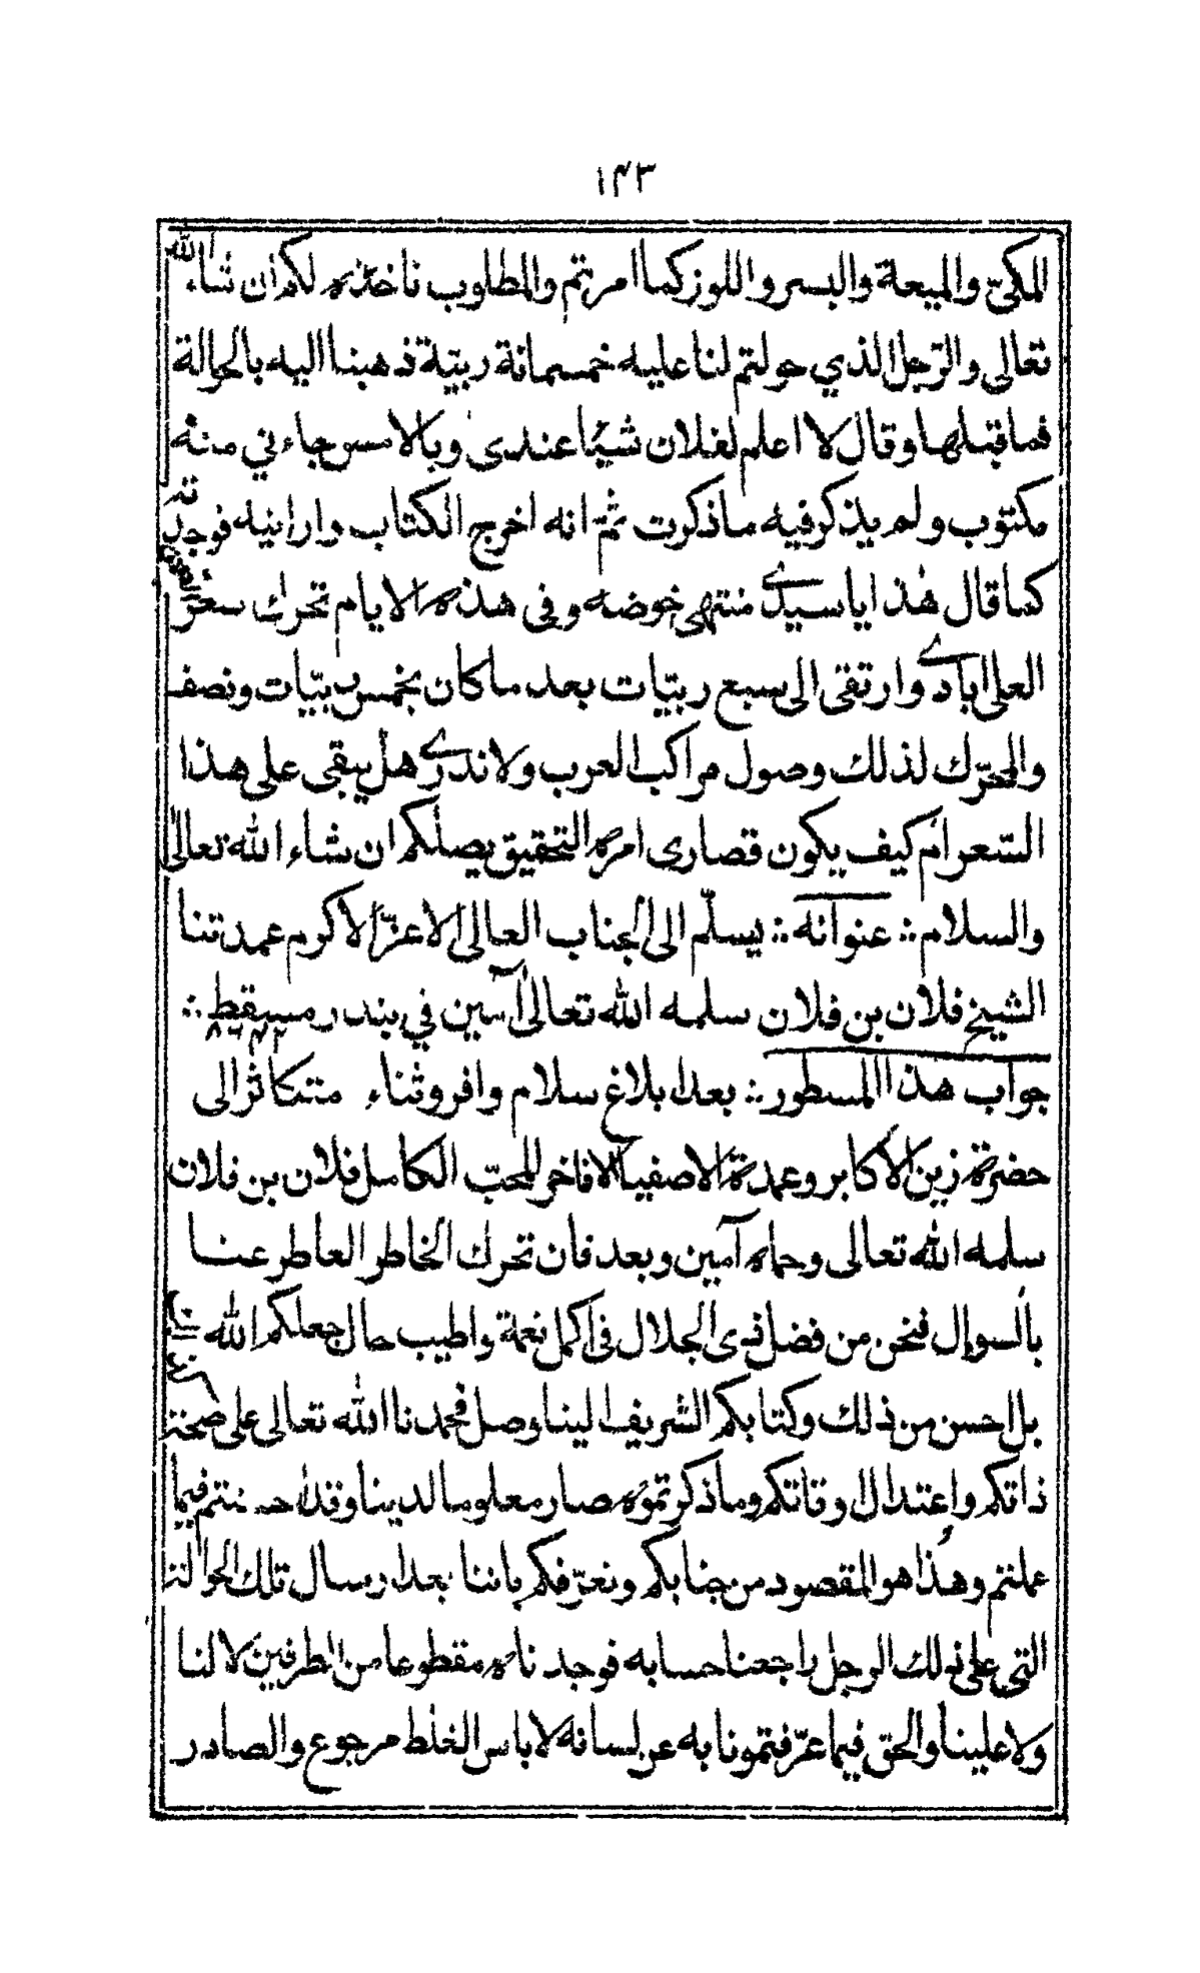 ١٤٣
المكيّ والميعة والبسر واللوز كما امرتم والمطلوب ناخذه لكم ان شاء الله
تعالى والرّجل الذي حولتم لنا عليه خمسمائة ربيّة ذهبنا اليه بالحوالة
فما قبلها وقال لا اعلم لفلان شيئا عندى وبالامس جاءني منه
مكتوب ولم يذكر فيه ما ذكرت ثمّ انه اخرج الكتاب وارانيه فوجدته
كما قال هذا يا سيدي منتهى خوضه وفى هذه الايام تحرك سعر
العلى ابادي وارتقى الى سبع ربيّات بعد ما كان بخمس ربيّات ونصف
والمحرّك لذلك وصول مراكب العرب ولا ندري هل يبقى على هذا
السّعر ام كيف يكون قصارى امره التحقيق يصلكم ان شاء الله تعالى
والسلام ؛ عنوانه ؛ يسلّم الى الجناب العالى الاعزّ الاكرم عمدتنا
الشيخ فلان بن فلان سلمه الله تعالى آمين في بندر مسقط ؛
٨٦٤٢
جواب هذا المسطور ؛ بعد ابلاغ سلام وافر وثناء متكاثر الى
حضرة زين الاكابر وعمدة الاصفيا الافاخر المحبّ الكامل فلان بن فلان
سلمه الله تعالى وحماه آمين وبعد فان تحرك الخاطر العاطر عنا
بالسوال فنحن من فضل ذى الجلال فى اكمل نعمة واطيب حال جعلكم الله
بل احسن من ذلك وكتابكم الشريف الينا وصل فحمدنا الله تعالى على صحة
ذاتكم واعتدال اوقاتكم وما ذكرتموه صار معلوما لدينا وقد احسنتم فيما
عملتم وهذا هو المقصود من جنابكم ونعرّفكم باننا بعد ارسال تلك الحوالة
التى على ذلك الرجل راجعنا حسابه فوجدناه مقطوعا من الطرفين لا لنا
ولا علينا والحق فيما عرّفتمونا به عن لسانه لا باس الغلط مرجوع والصادر